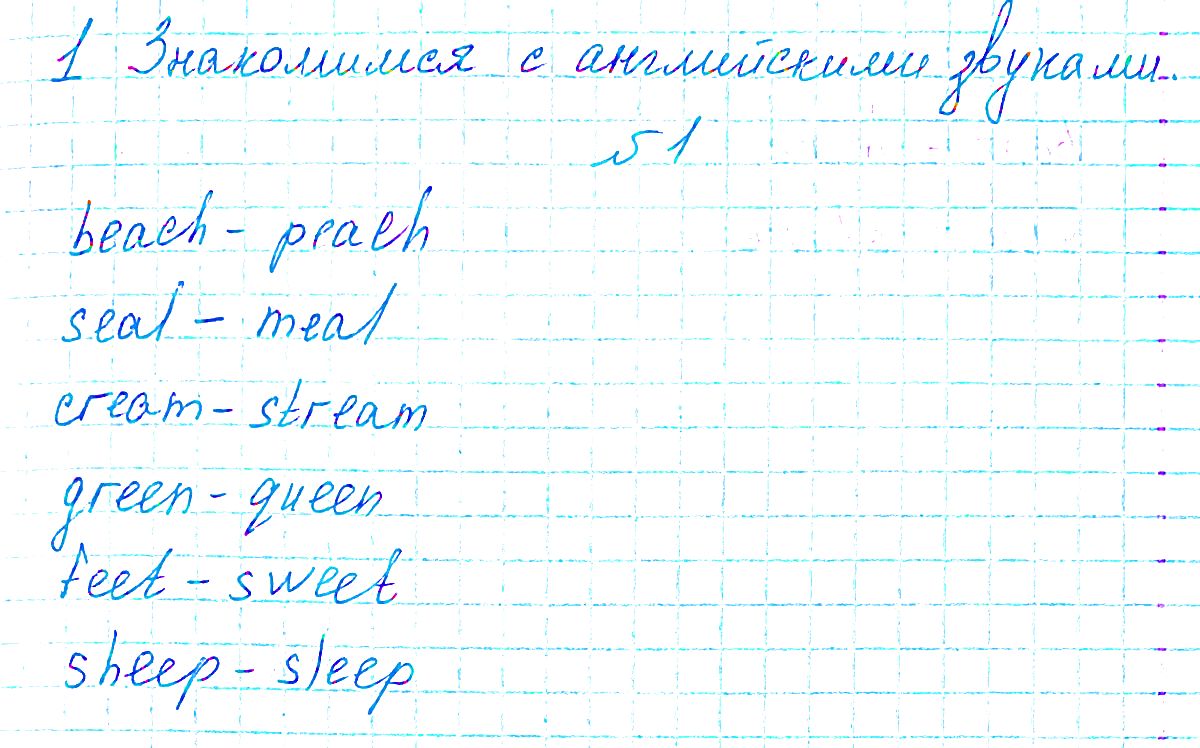 1 Знакомимся с английскими звуками.
№1
beach - peach
seal - meal
cream - stream
green - queen
feet - sweet
sheep - sleep